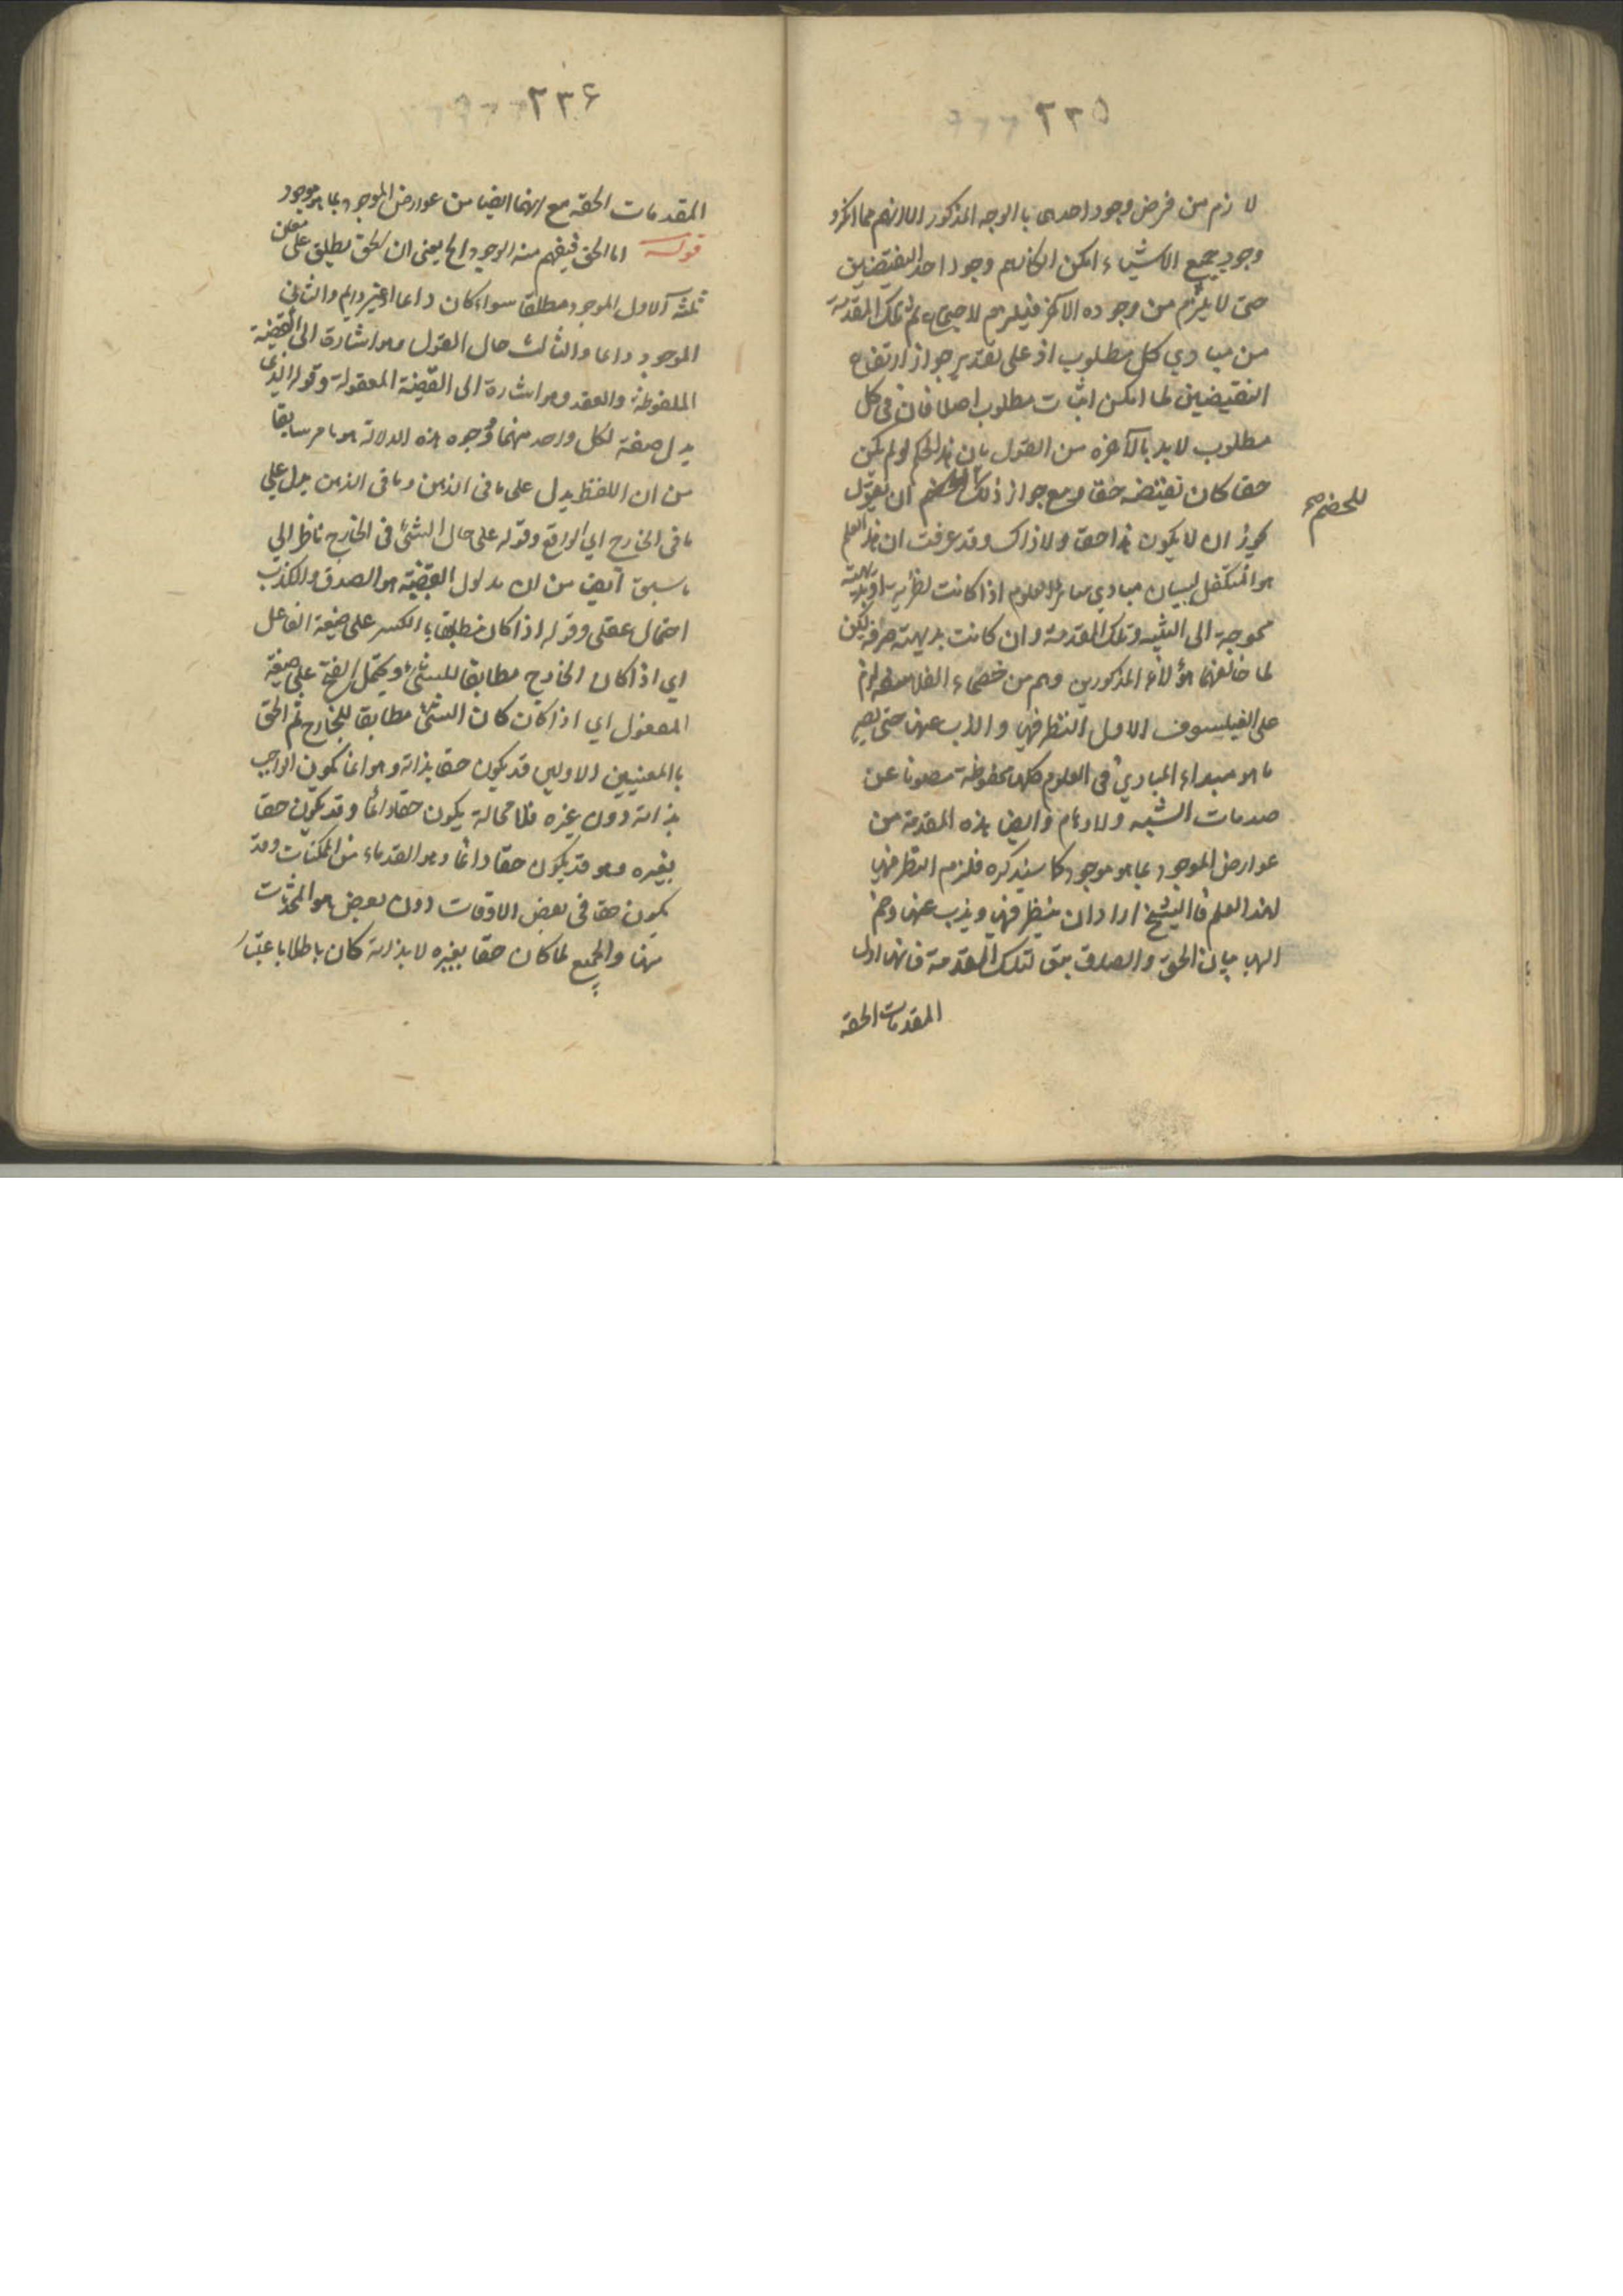 ٢٣٥
لازم من فرض وجود احدى بالوجه المذكور اللازم مما انكرو
وجود جميع الاشياء امكن انكارهم وجود احد النقيضين
حتى لا يلزم من وجوده الاخر فيلزم لا ثم تلك المقدمة
من مبادي كل مطلوب اذ على تقدير جواز ارتفاع
النقيضين لما امكن اثبات مطلوب اصلا فان في كل
مطلوب لابد بالآخره من القول بان هذا الحكم لو لم يكن
حقا كان نقيضه حقا ومع جواز ذلك ان يقول
للخصم صح
يجوز ان لا يكون هذا حقا ولا ذاك وقد عرفت ان هذا العلم
هو المتكفل لبيان مبادي سائر العلوم اذا كانت نظرية او بديهية
محوجة الى التنبيه وتلك المقدمة وان كانت بديهية صرفة لكن
لما خالفها هؤلاء المذكورين وهم من خصماء الفلاسفة لزم
على الفيلسوف الاول النظر فيها والذب عنها حتى يصير
ما هو مبداء المبادي في العلوم كلها محفوظة مصونا عن
صدمات الشبه والاوهام وايضا هذه المقدمة من
عوارض الموجود بما هو موجود كما سيذكره فلزم النظر فيها
لهذا العلم فالشيخ اراد ان ينظر فيها ويذب عنها
اليها بيان الحق والصدق لتلك المقدمة فانها اول
المقدمات الحقه
٢٣٦
المقدمات الحقه مع انها ايضا من عوارض الموجود بما هو موجود
قوله اما الحق فيفهم منه الوجود الخ يعني ان الحق يطلق على معان
ثلثه الاول الموجود مطلقا سواء كان دائما او غير دايم والثاني
الموجود دائما والثالث حال القول وهو اشارة الى القضية
الملفوظة والعقد وهو اشارة الى القضية المعقولة وقوله الذي
يدل صفة لكل واحد منهما ووجوه هذه الدلالة هو ما مر سابقا
من ان اللفظ يدل على ما في الذهن وما في الذهن يدل على
ما في الخارج اي الواقع وقوله على حال الشئ في الخارج ناظر الى
ما سبق ايضا من ان مدلول القضية هو الصدق والكذب
احتمال عقلي وقوله اذا كان مطابقا بالكسر على صيغة الفاعل
اي اذا كان الخارج مطابقا للشئ ويحتمل الفتح على صيغة
المفعول اي اذا كان كان الشئ مطابقا للخارج ثم الحق
بالمعنيين الاولين قد يكون حقا بذاته وهو انما يكون الواجب
بذاته دون غيره فلا محالة يكون حقا دائما وقد يكون حقا
بغيره وهو قد يكون حقا دائما وهو القدماء من الممكنات وقد
يكون حقا في بعض الاوقات دون بعض هو المحدثات
منها والجميع لما كان حقا بغيره لا بذاته كان باطلا باعتبار